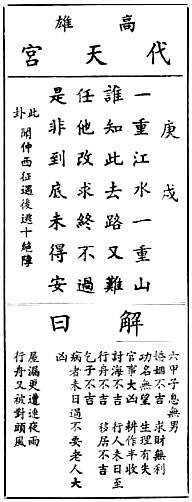 高雄
代天宮
庚戌
一重江水一重山
誰知此去路又難
任他改求終不過
是非到底未得安
此卦
開仲西征遇後逃十絕陣
解曰
六甲子息無男
婚姻不吉　求財無利
功名無望　生理有失
官事大凶　耕作半收
討海不吉　行人未日至
行舟不吉　移居不吉
乞子不吉
病者未日過不安老人大凶
屋漏更遭連夜雨
行舟又被對頭風